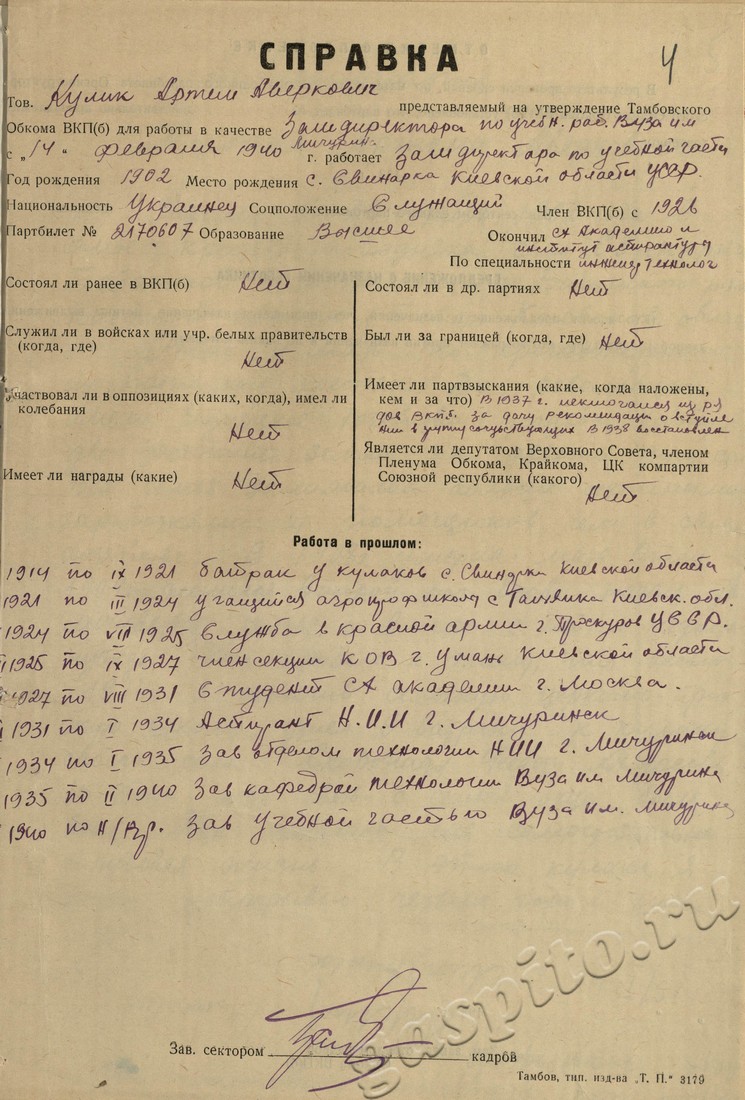 4
СПРАВКА
Тов. Кулик Артем Аверкович представляемый на утверждение Тамбовского
Обкома ВКП(б) для работы в качестве Замдиректора по учебн. раб. Вуза им Мичурин.
с „14" февраля 1940 г. работает Зам директора по учебной части
Год рождения 1902 Место рождения с. Свинарка Киевской области УССР.
Национальность Украинец Соцположение Служащий Член ВКП(б) с 1926
Партбилет № 2170607 Образование Высшее Окончил СХ Академию и
институт аспирантуры
По специальности инженер технолог
Состоял ли ранее в ВКП(б) Нет
Состоял ли в др. партиях Нет
Служил ли в войсках или учр. белых правительств
(когда, где) Нет
Был ли за границей (когда, где) Нет
Участвовал ли в оппозициях (каких, когда), имел ли
колебания Нет
Имеет ли партвзыскания (какие, когда наложены,
кем и за что) В 1937 г. исключался из ря
дов ВКП.б. за дачу рекомендации о вступле
нии в группу сочувствующих В 1938 восстановлен
Имеет ли награды (какие) Нет
Является ли депутатом Верховного Совета, членом
Пленума Обкома, Крайкома, ЦК компартии
Союзной республики (какого) Нет
Работа в прошлом:
1914 по IX 1921 батрак у кулаков с. Свинарка Киевской области
1921 по III 1924 учащийся агропрофшколы с Тальника Киевск. обл.
1924 по VIII 1925 Служба в красной армии г. Проскуров УССР.
1925 по IX 1927 член секции КОВ г. Умань Киевской области
1927 по VIII 1931 Студент СХ академии г. Москва.
1931 по I 1934 Аспирант Н.И.И г. Мичуринск
1934 по I 1935 Зав отделом технологии НИИ г. Мичуринск
1935 по II 1940 Зав кафедрой технологии Вуза им Мичурина
1940 по Н/Вр. Зав учебной частью Вуза им. Мичурина
Зав. сектором кадров
Тамбов, тип. изд-ва „Т. П." 3179
gaspito.ru